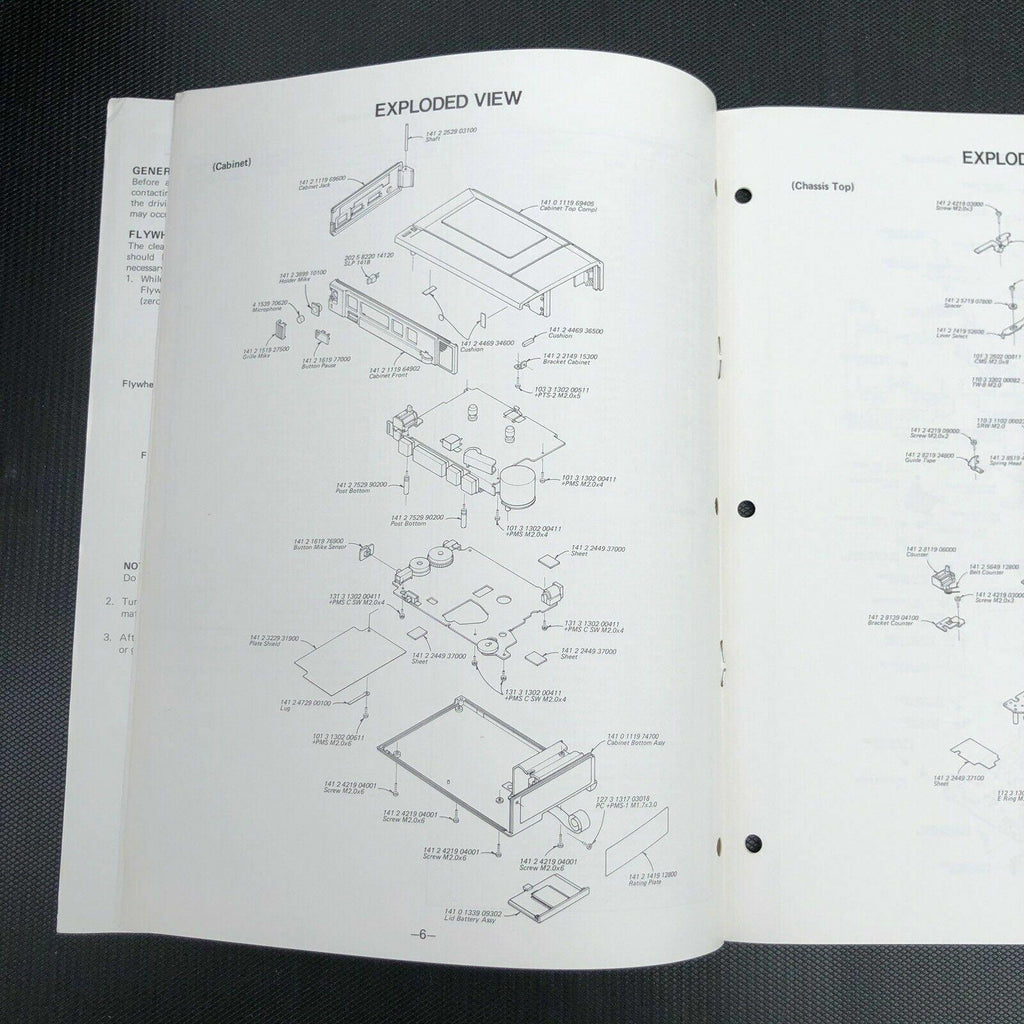 GENER
Before a
contactin
the drivi
may occu
FLYWH
The clea
should
necessary
1. While
Flyw
(zero
Flywhe
F
NO
Do
2. Tur
mat
3. Aft
or
EXPLODED VIEW
(Cabinet)
141 2 2529 03100
Shaft
141 2 1119 69600
Cabinet Jack
141 0 1119 69405
Cabinet Top Compl
202 5 8220 14120
SLP 141B
141 2 3899 10100
Holder Mike
4 1539 70620
Microphone
141 2 1519 27500
Grille Mike
141 2 1619 77000
Button Pause
141 2 1119 64902
Cabinet Front
141 2 4469 34600
Cushion
141 2 4469 36500
Cushion
141 2 2149 15300
Bracket Cabinet
103 3 1302 00511
+PTS-2 M2.0x5
141 2 7529 90200
Post Bottom
101 3 1302 00411
+PMS M2.0x4
141 2 7529 90200
Post Bottom
101 3 1302 00411
+PMS M2.0x4
141 2 1619 76900
Button Mike Sensor
141 2 2449 37000
Sheet
131 3 1302 00411
+PMS C SW M2.0x4
131 3 1302 00411
+PMS C SW M2.0x4
141 2 3229 31900
Plate Shield
141 2 2449 37000
Sheet
141 2 2449 37000
Sheet
131 3 1302 00411
+PMS C SW M2.0x4
141 2 4729 00100
Lug
101 3 1302 00611
+PMS M2.0x6
141 0 1119 74700
Cabinet Bottom Assy
141 2 4219 04001
Screw M2.0x6
127 3 1317 03018
PC +PMS-1 M1.7x3.0
141 2 4219 04001
Screw M2.0x6
141 2 4219 04001
Screw M2.0x6
141 2 4219 04001
Screw M2.0x6
141 2 1419 12800
Rating Plate
141 0 1339 09302
Lid Battery Assy
—6—
EXPLOD
(Chassis Top)
141 2 4219 03900
Screw M2.0x3
141 2 5719 07800
Spacer
141 2 7419 52600
Lever Select
101 3 2502 00811
CMS M2.0x8
110 3 3202 00082
TW-B M2.0
110 3 1102 0002
SRW M2.0
141 2 4219 09000
Screw M2.0x2
141 2 8219 24800
Guide Tape
141 2 8519 4
Spring Head
Counter
141 2 8119 06000
141 2 5649 12800
Belt Counter
141 2 4219 0300
Screw M2.0x3
141 2 8139 04100
Bracket Counter
141 2 2449 37100
Sheet
112 3 130
E Ring M